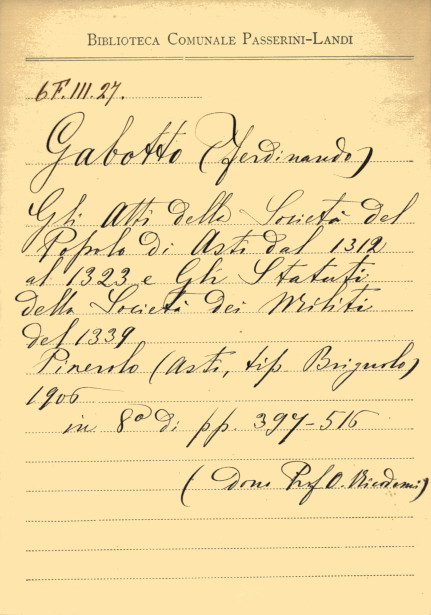 BIBLIOTECA COMUNALE PASSERINI-LANDI
6F.III.27.
Gabotto (Ferdinando)
Gli Atti della Società del
Popolo di Asti dal 1312
al 1323 e Gli Statuti
della Società dei Militi
del 1339
Pinerolo (Asti, tip. Brignolo)
1906
in 8º di pp. 397-516
(dono Prof O. Nicodemi)